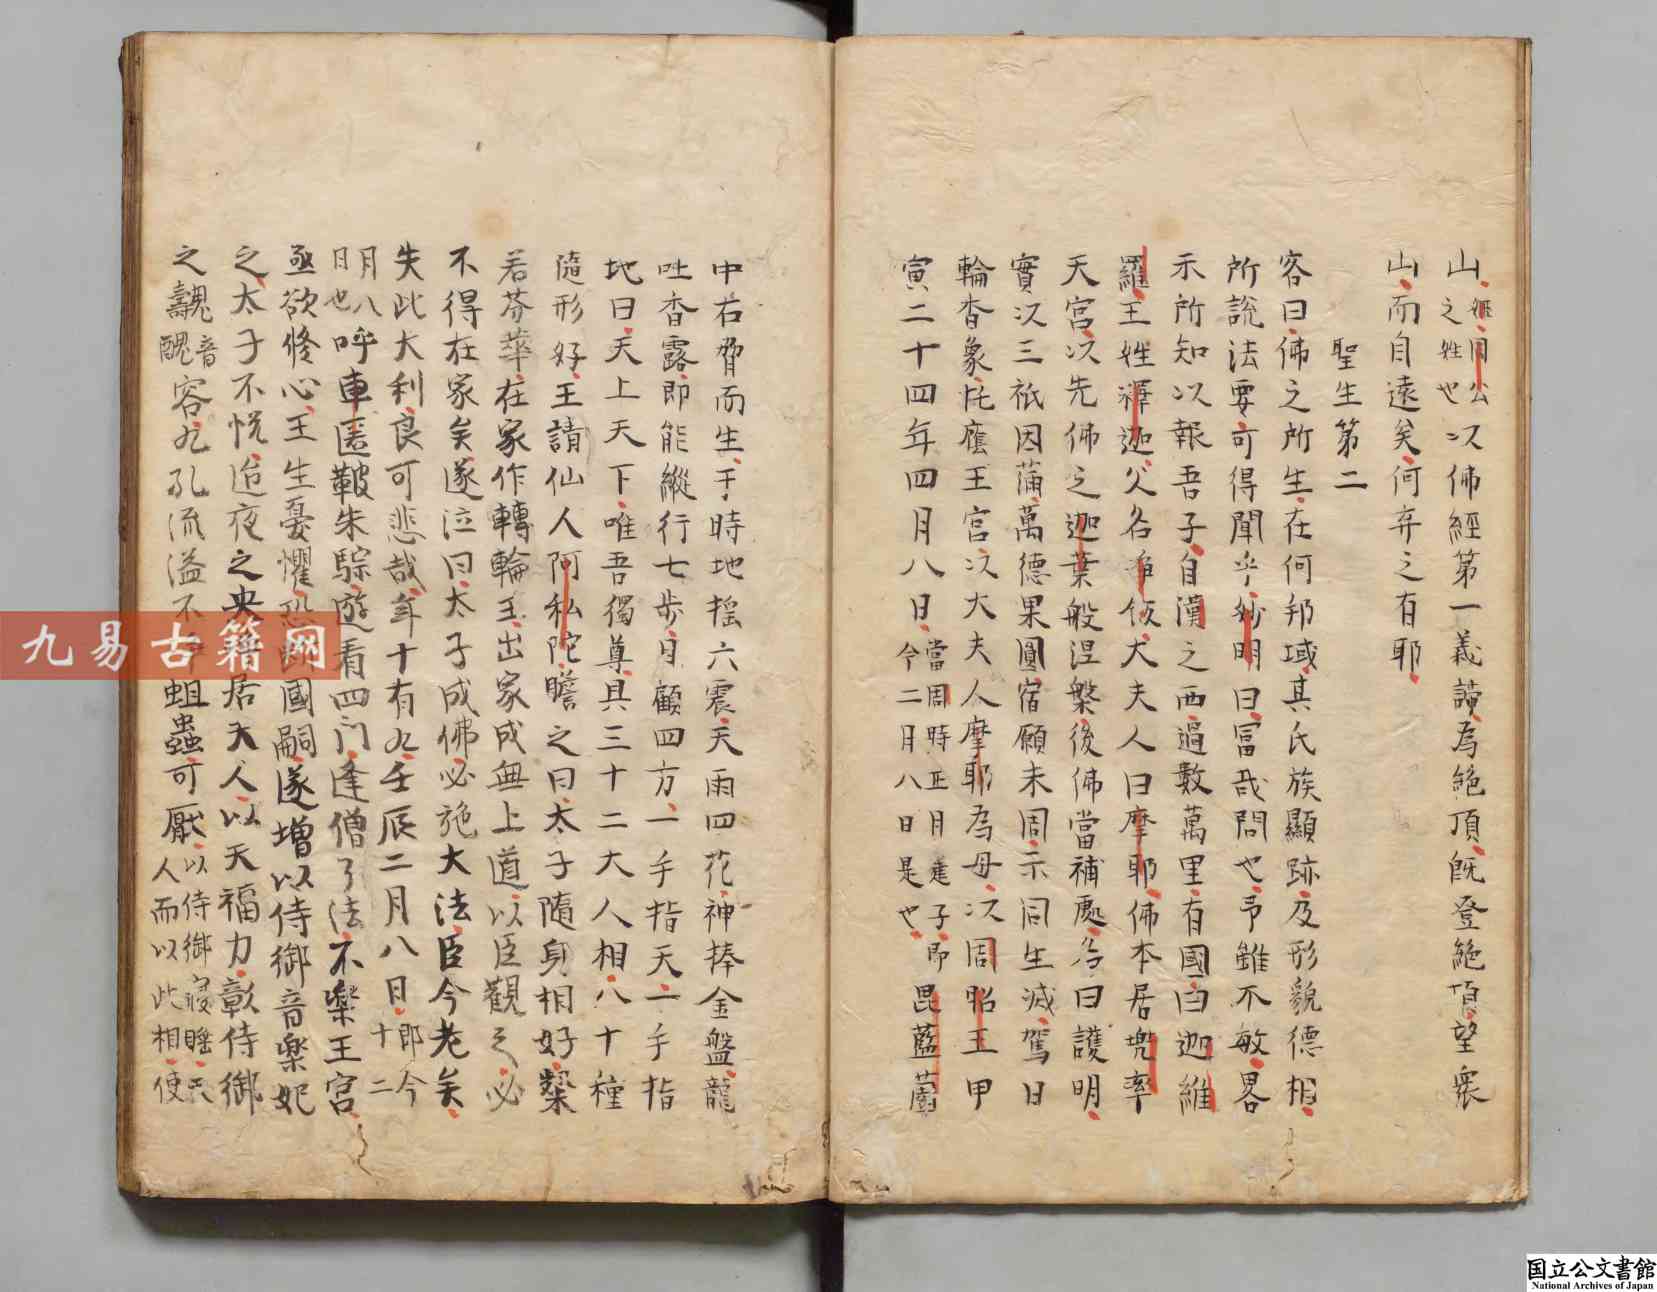 山姬周公之姓也以佛經第一義諦為絶頂既登絶頂望衆
山而自遠矣何弃之有耶
聖生第二
客曰佛之所生在何邦域其氏族顯跡及形貌德相
所説法要可得聞乎妙明曰冨哉問也予雖不敏畧
示所知以報吾子自漢之西過數萬里有國曰迦維
羅王姓釋迦父名浄飯大夫人曰摩耶佛本居兠率
天宮以先佛之迦葉般涅槃後佛當補處名曰護明
實以三祇因蒲萬德果圓宿願未周示同生滅駕日
輪杳象託廕王宮以大夫人摩耶為母以周昭王甲
寅二十四年四月八日當周時正月建子即今二月八日是也毘藍薗
中右脅而生于時地揺六震天雨四花神捧金盤龍
吐香露即能縱行七歩目顧四方一手指天一手指
地曰天上天下唯吾獨尊具三十二大人相八十種
隨形好王請仙人阿私陀瞻之曰太子隨身相好粲
若芬華在家作轉輪王出家成無上道以臣觀之必
不得在家矣遂泣曰太子成佛必施大法臣今老矣
失此大利良可悲哉年十有九壬辰二月八日即今十二
月八日也呼車匿鞁朱騌遊看四門逢僧了法不樂王宮
亟欲修心王生憂懼恐國嗣遂增以侍御音樂妃
之太子不悅迨夜之央居天人以天福力彰侍御
之醜音醜容九孔流溢不蛆蟲可厭以侍御寢睡天人而以此相使
九易古籍网
国立公文書館
National Archives of Japan